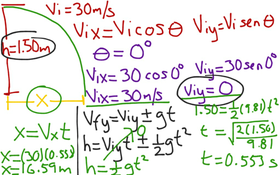 Vi=30m/s
h=1.50m
Vix=Vicosθ
Viy=Visenθ
θ=0°
Vix=30cos0°
Vix=30m/s
Viy=30sen0°
Viy=0
X
X=Vxt
X=(30)(0.553)
X=16.59m
Vfy=Viy±gt
h=Viyt±½gt²
h=½gt²
1.50=½(9.81)t²
t=√2(1.50)/9.81
t=0.553s